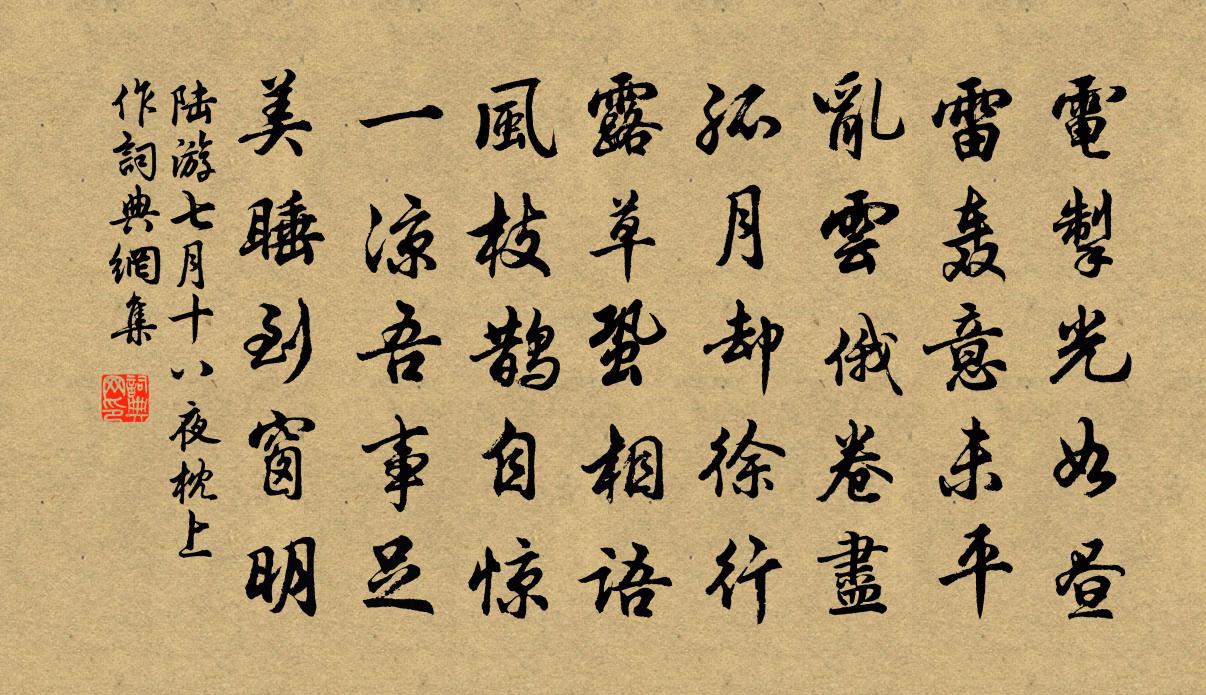 電掣光如昼
雷轰意未平
亂雲俄卷盡
孤月却徐行
露草蛩相語
風枝鹊自惊
一凉吾事足
美睡到窗明
陆游七月十八夜枕上
作詞典網集
詞典網印